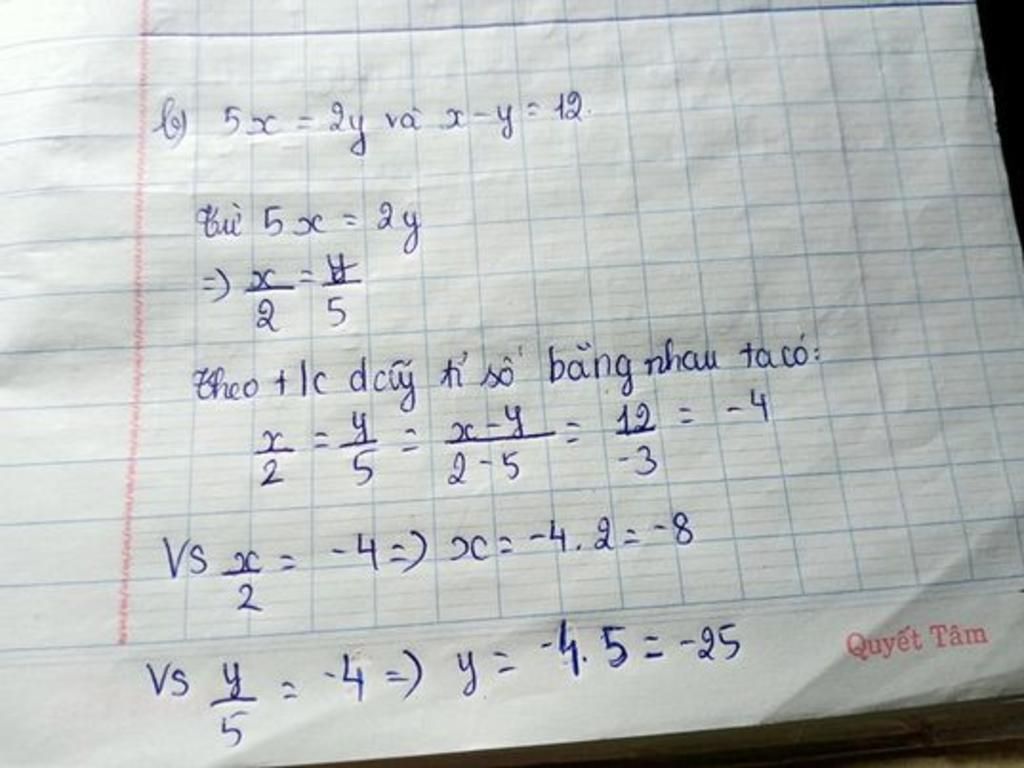 b) 5x = 2y và x - y = 12.
từ 5x = 2y
=> x/2 = y/5
theo t/c dãy tỉ số bằng nhau ta có:
x/2 = y/5 = x-y/2-5 = 12/-3 = -4
VS x/2 = -4 => x = -4. 2 = -8
VS y/5 = -4 => y = -4. 5 = -25
Quyết Tâm